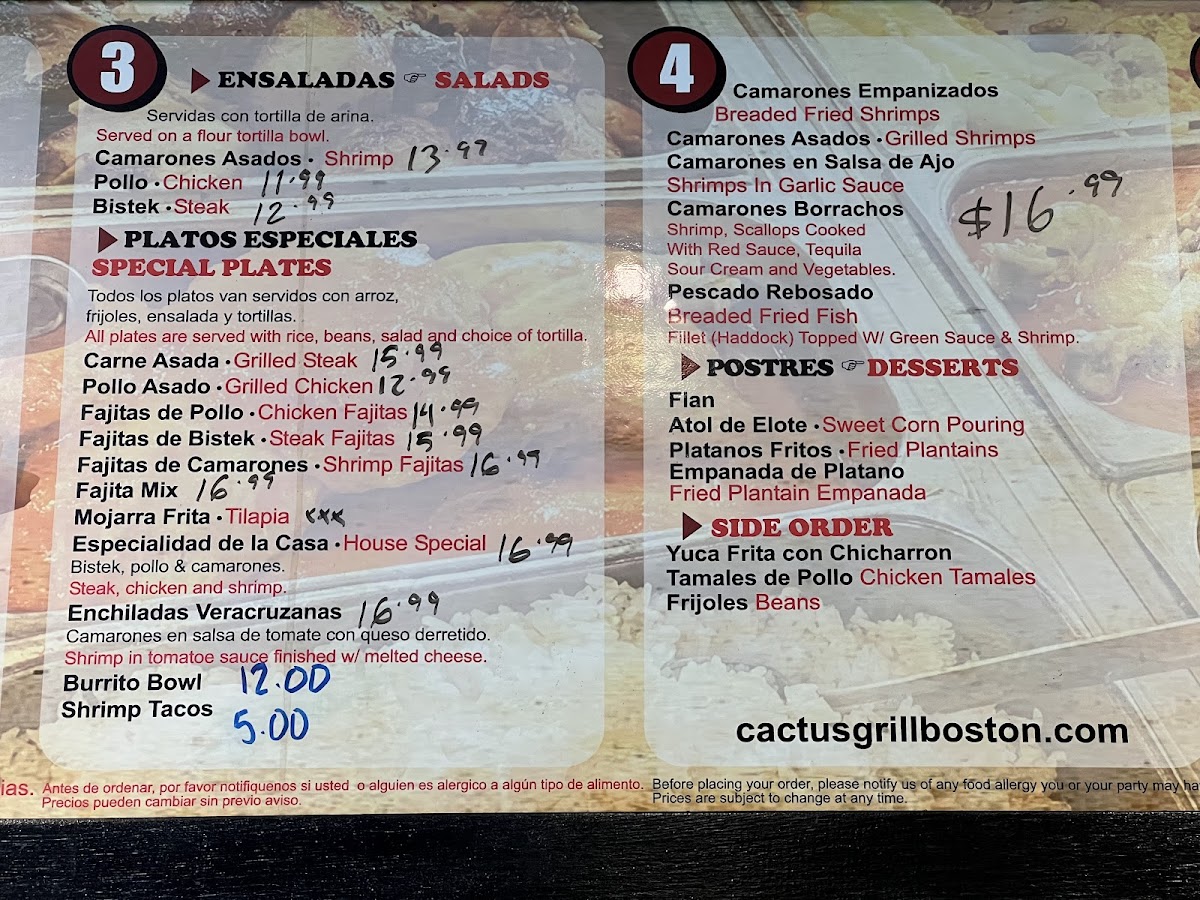 3
ENSALADAS ☞ SALADS
Servidas con tortilla de arina.
Served on a flour tortilla bowl.
Camarones Asados · Shrimp 13.99
Pollo · Chicken 11.99
Bistek · Steak 12.99
PLATOS ESPECIALES
SPECIAL PLATES
Todos los platos van servidos con arroz,
frijoles, ensalada y tortillas.
All plates are served with rice, beans, salad and choice of tortilla.
Carne Asada · Grilled Steak 15.99
Pollo Asado · Grilled Chicken 12.99
Fajitas de Pollo · Chicken Fajitas 14.99
Fajitas de Bistek · Steak Fajitas 15.99
Fajitas de Camarones · Shrimp Fajitas 16.99
Fajita Mix 16.99
Mojarra Frita · Tilapia xxx
Especialidad de la Casa · House Special 16.99
Bistek, pollo & camarones.
Steak, chicken and shrimp.
Enchiladas Veracruzanas 16.99
Camarones en salsa de tomate con queso derretido.
Shrimp in tomatoe sauce finished w/ melted cheese.
Burrito Bowl 12.00
Shrimp Tacos 5.00
4
Camarones Empanizados
Breaded Fried Shrimps
Camarones Asados · Grilled Shrimps
Camarones en Salsa de Ajo
Shrimps In Garlic Sauce
Camarones Borrachos $16.99
Shrimp, Scallops Cooked
With Red Sauce, Tequila
Sour Cream and Vegetables.
Pescado Rebosado
Breaded Fried Fish
Fillet (Haddock) Topped W/ Green Sauce & Shrimp.
POSTRES ☞ DESSERTS
Flan
Atol de Elote · Sweet Corn Pouring
Platanos Fritos · Fried Plantains
Empanada de Platano
Fried Plantain Empanada
SIDE ORDER
Yuca Frita con Chicharron
Tamales de Pollo Chicken Tamales
Frijoles Beans
cactusgrillboston.com
ias. Antes de ordenar, por favor notifiquenos si usted o alguien es alergico a algún tipo de alimento.
Precios pueden cambiar sin previo aviso.
Before placing your order, please notify us of any food allergy you or your party may ha
Prices are subject to change at any time.